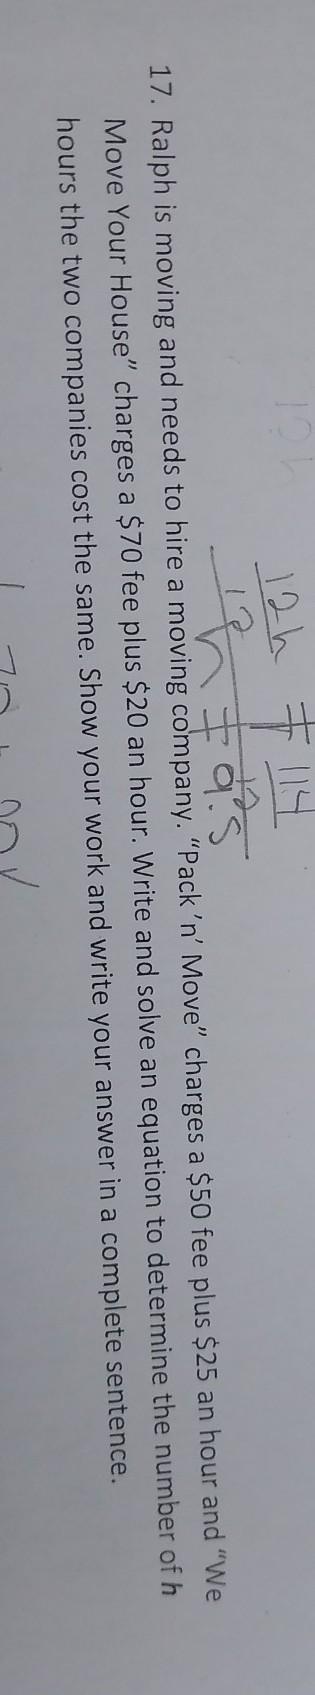 12h = 114
12 12
h = 9.5
17. Ralph is moving and needs to hire a moving company. "Pack 'n' Move" charges a $50 fee plus $25 an hour and "We
Move Your House" charges a $70 fee plus $20 an hour. Write and solve an equation to determine the number of h
hours the two companies cost the same. Show your work and write your answer in a complete sentence.